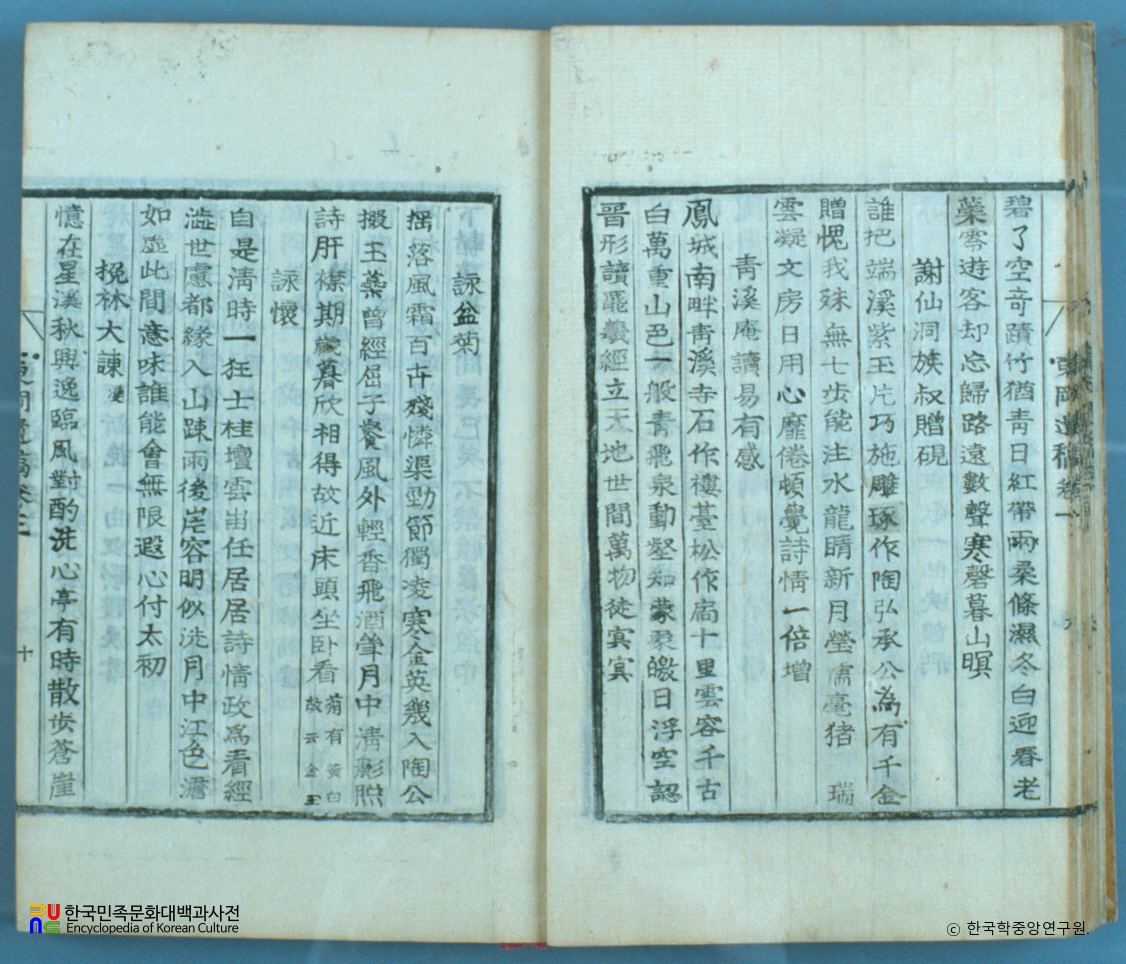 碧了空奇蹟竹猶靑日紅帶兩柔條濕冬白迎春老
藥零遊客却忘歸路遠數聲寒磬暮山暝
謝仙洞族叔贈硯
誰把端溪紫玉片巧施雕琢作陶弘承公為有千金
贈愧我殊無七步能注水龍晴新月瑩濡毫猪 瑞
雲凝文房日用心靡倦頓覺詩情一倍增
靑溪庵讀易有感
鳳城南畔靑溪寺石作樓臺松作扃十里雲容千古
白萬重山邑一般靑飛泉動壑知蒙彖皦日浮空認
晉形讀罷羲經立天地世間萬物徒宲宲
遺稿卷一
詠盆菊
搖落風霜百卉殘憐渠勁節獨凌寒金英幾入陶公
掇玉蘂曾經屈子餐風外輕香飛酒聳月中淸影照
詩肝襟期歲暮欣相得故近床頭坐卧看 菊有黃白
故云金玉
詠懷
自是淸時一狂士桂壇雲畄任居居詩情政爲看經
澁世慮都緣入山踈雨後岸容明似洗月中江色澹
如虛此間意味誰能會無限遐心付太初
挽林大諫
憶在星溪秋興逸臨風對酌洗心亭有時散步蒼崖
十
한국민족문화대백과사전
Encyclopedia of Korean Culture
© 한국학중앙연구원.